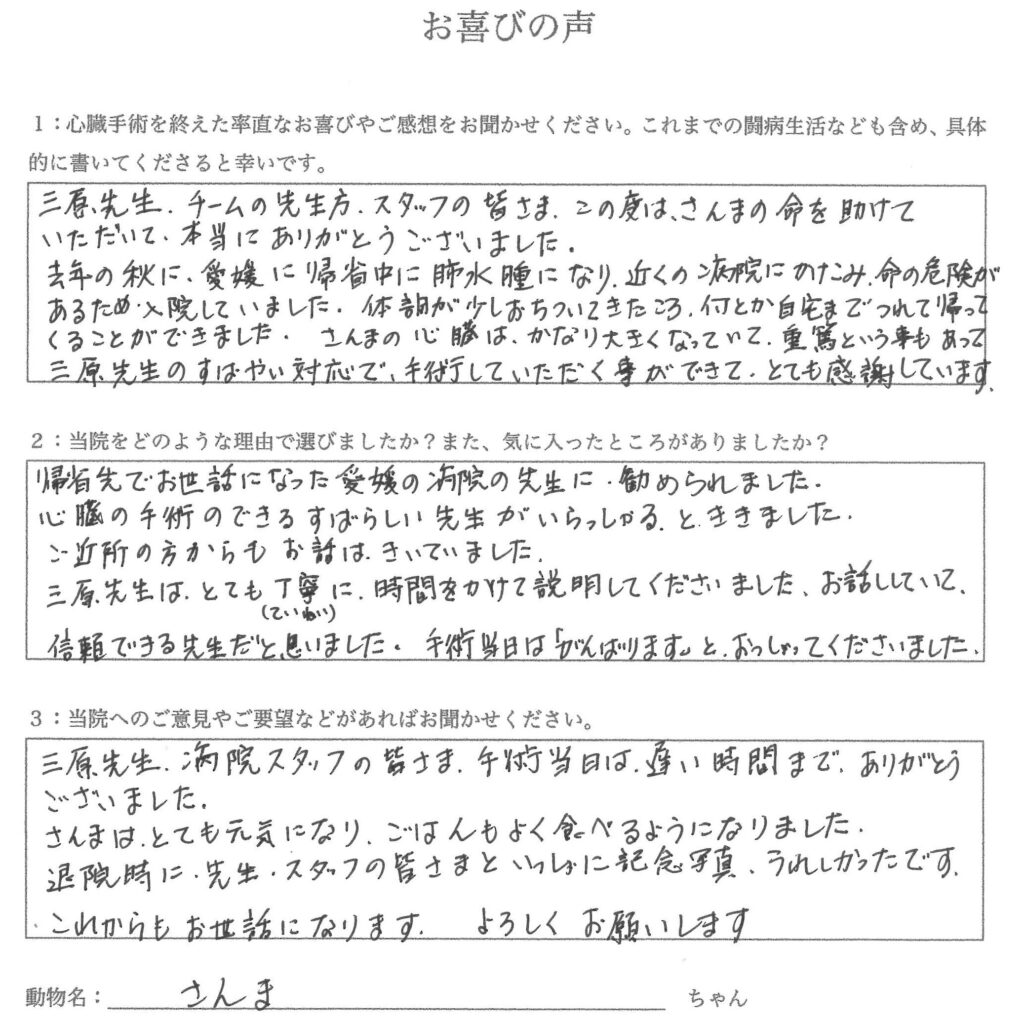 お喜びの声
1：心臓手術を終えた率直なお喜びやご感想をお聞かせください。これまでの闘病生活なども含め、具体
的に書いてくださると幸いです。
三原先生、チームの先生方、スタッフの皆さま、この度は、さんまの命を助けて
いただいて、本当にありがとうございました。
去年の秋に、愛媛に帰省中に肺水腫になり、近くの病院にかけこみ、命の危険が
あるため入院していました。体調が少しおちついてきたころ、何とか自宅までつれて帰って
くることができました。さんまの心臓は、かなり大きくなっていて、重篤という事もあって
三原先生のすばやい対応で、手術していただく事ができて、とても感謝しています。
2：当院をどのような理由で選びましたか？また、気に入ったところがありましたか？
帰省先でお世話になった愛媛の病院の先生に、勧められました。
心臓の手術のできるすばらしい先生がいらっしゃる、と、ききました。
ご近所の方からもお話は、きいていました。
三原先生は、とても丁寧に、時間をかけて説明してくださいました、お話ししていて、
(ていねい)
信頼できる先生だと思いました。手術当日は「がんばります。」と、おっしゃってくださいました、
3：当院へのご意見やご要望などがあればお聞かせください。
三原先生、病院スタッフの皆さま、手術当日は、遅い時間まで、ありがとう
ございました。
さんまは、とても元気になり、ごはんもよく食べるようになりました、
退院時に、先生、スタッフの皆さまといっしょに記念写真、うれしかったです、
これからもお世話になります、よろしくお願いします
動物名：さんま ちゃん